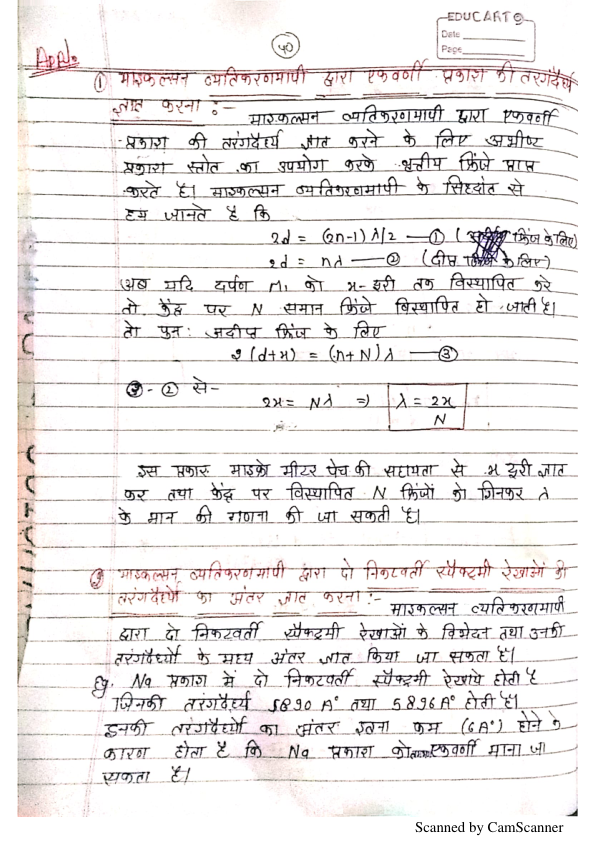 EDUCART
Date
Page
40
Appl.
① माइकल्सन व्यतिकरणमापी द्वारा एकवर्णी प्रकाश की तरंगदैर्ध्य
ज्ञात करना :-
माइकल्सन व्यतिकरणमापी द्वारा एकवर्णी
प्रकाश की तरंगदैर्ध्य ज्ञात करने के लिए अभीष्ट
प्रकाश स्तोत का उपयोग करके वृत्तीय फ्रिंजे प्राप्त
करते है। माइकल्सन व्यतिकरणमापी के सिद्धांत से
हम जानते है कि
2d = (2n-1) λ/2 — ① ( फ्रिंज के लिए)
2d = nλ — ② (दीप्त के लिए)
अब यदि दर्पण M₁ को x-दूरी तक विस्थापित करे
तो केंद्र पर N समान फ्रिंजे विस्थापित हो जाती है।
तो पुनः प्रदीप्त फ्रिंज के लिए
2 (d+x) = (n+N) λ — ③
③ - ② से-
2x = Nλ ⇒ λ = 2x/N
इस प्रकार माइक्रो मीटर पेच की सहायता से x दूरी ज्ञात
कर तथा केंद्र पर विस्थापित N फ्रिंजों को गिनकर λ
के मान की गणना की जा सकती है।
② माइकल्सन व्यतिकरणमापी द्वारा दो निकटवर्ती स्पैक्ट्रमी रेखाओं की
तरंगदैर्ध्यों का अंतर ज्ञात करना :-
माइकल्सन व्यतिकरणमापी
द्वारा दो निकटवर्ती स्पैक्ट्रमी रेखाओं के विभेदन तथा उनकी
तरंगदैर्ध्यों के मध्य अंतर ज्ञात किया जा सकता है।
Eg. Na प्रकाश में दो निकटवर्ती स्पैक्ट्रमी रेखाये होती है
जिनकी तरंगदैर्ध्य 5890 A° तथा 5896 A° होती है।
इनकी तरंगदैर्ध्यों का अंतर इतना कम (6A°) होने के
कारण होता है कि Na प्रकाश को एकवर्णी माना जा
सकता है।
Scanned by CamScanner